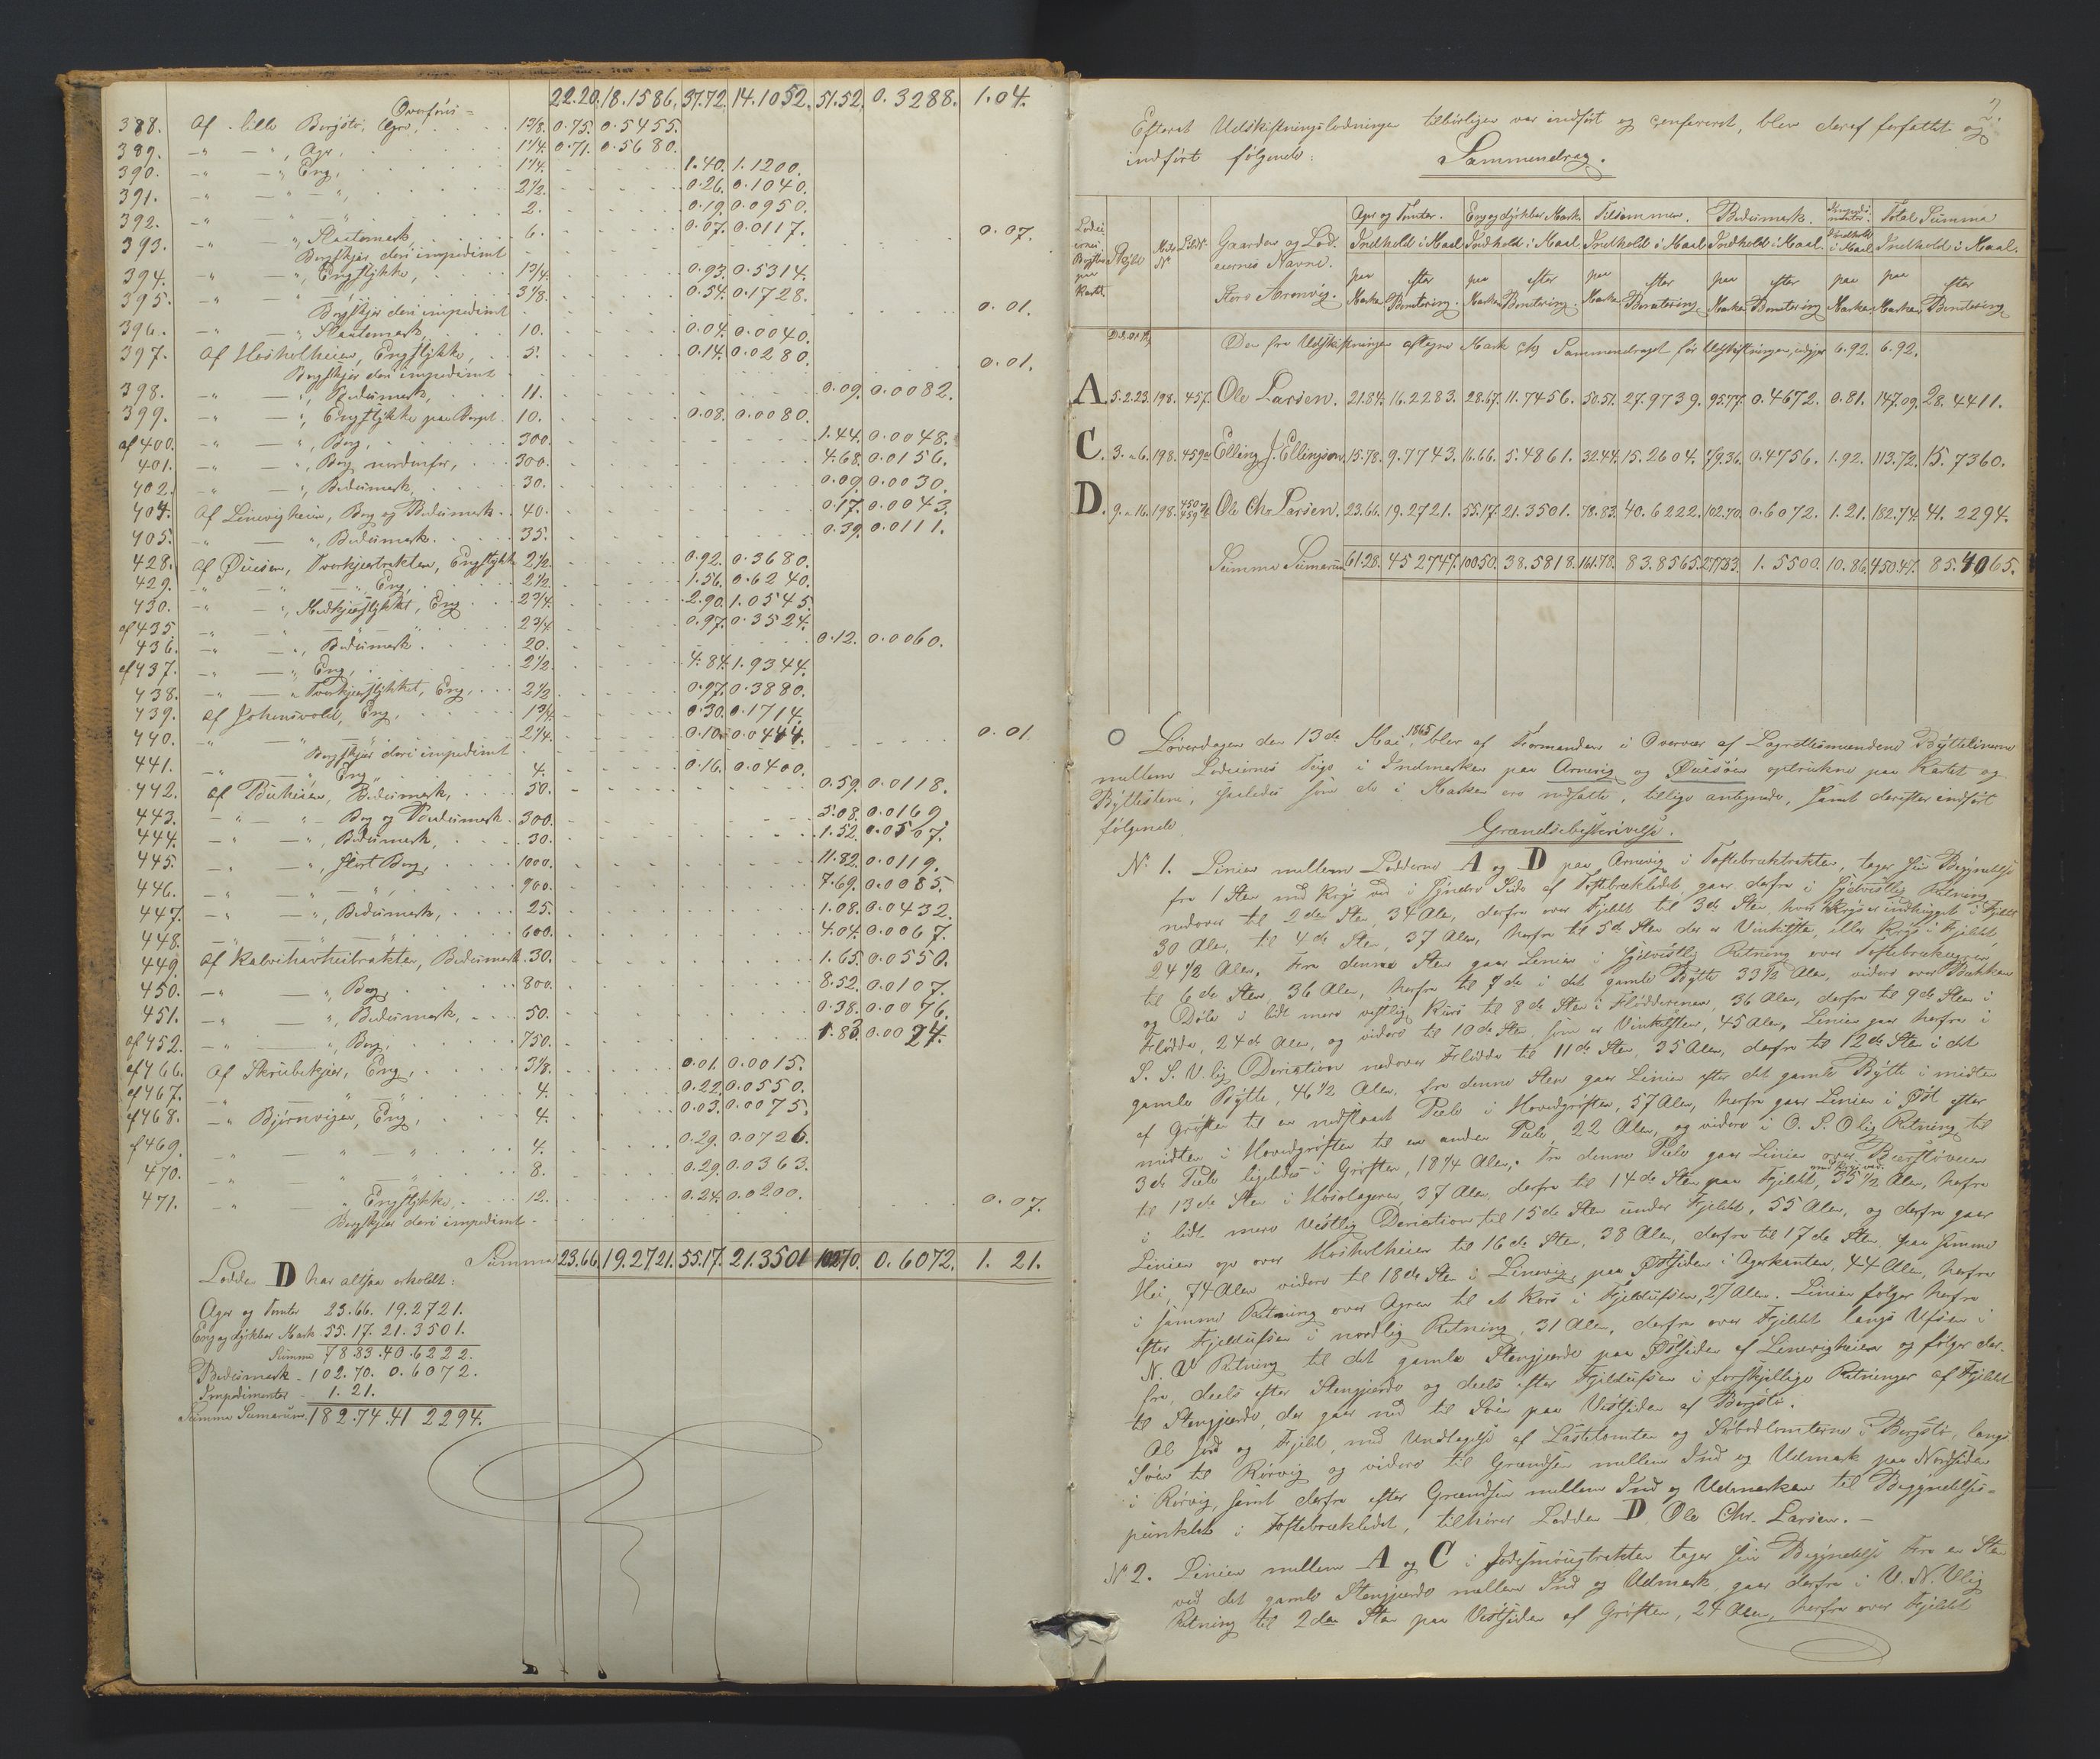 Overføres - 22.20. 18.1586. 37.72. 14.1052. 51.52. 0.3288. 1.04.
388. Af lille Bergstø, Ager, 1 3/8. 0.75. 0.5455.
389. -"- - ", Ager, 1 1/4. 0.71. 0.5680.
390. -"- - ", Eng, 1 1/4. 1.40. 1.1200.
391. -"- - " - ", 2 1/2. 0.26. 0.1040.
392. -"- - " - 2. 0.19. 0.0950.
393. -"- - ", Slaatemark 6. 0.07. 0.0117.
Bergskjær deri impediment 0.07.
394. -"- - ", Engstykke, 1 3/4. 0.93. 0.5314.
395. -"- - " 3 1/8. 0.54. 0.1728.
Bergskjær deri impediment 0.01.
396. -"- - ", Slaatemark, 10. 0.04. 0.0040.
397. Af Hosholheien, Engstykke, 5. 0.14. 0.0280.
Bergskjær deri impediment 0.01.
398. -"- - ", Bedesmark, 11. 0.09. 0.0082.
399. -"- - ", Engstykke paa Berget 10. 0.08. 0.0080.
af 400. -"- - ", Berg, 300. 1.44. 0.0048.
401. -"- - ", Berg nordenfor, 300. 4.68. 0.0156.
402. -"- - ", Bedesmark, 30. 0.09. 0.0030.
404. Af Linevigheien, Berg og Bedesmark 40. 0.17. 0.0043.
405. -"- - ", Bedesmark. 35. 0.39. 0.0111.
428. Af Øuesen, Tverkjertrakten, Engstykke 2 1/2. 0.92. 0.3680.
429. -"- - " - Eng 2 1/2. 1.56. 0.6240.
430. -"- - ", Medkjærstykket, Eng 2 3/4. 2.90. 1.0545.
af 435 -"- - " - " 2 3/4. 0.97. 0.3524.
436. -"- - ", Bedesmark 20. 0.12. 0.0060.
af 437. -"- - ", Eng, 2 1/2. 4.84. 1.9344.
438. -"- - ", Tverkjærstykket, Eng, 2 1/2. 0.97. 0.3880.
439. Af Johensvold, Eng, 1 3/4. 0.30. 0.1714.
440. -"- - " - " 2 1/4. 0.10. 0.0444.
Bergskjær deri impediment 0.01
441. -"- - " Eng 4. 0.16. 0.0400.
442. Af Bukheien, Bedesmark, 50. 0.59. 0.0118.
443. -"- - " - Berg og Bedesmark 300. 5.08. 0.0169.
444. -"- - ", Bedesmark, 30. 1.52. 0.0507.
445. -"- - ", slet Berg, 1000. 11.82. 0.0119.
446. -"- - " - ", 900. 7.69. 0.0085.
447. -"- - ", Bedesmark, 25. 1.08. 0.0432.
448. -"- - " - " 600. 4.04. 0.0067.
449. Af Kalvehavheitrakten, Bedesmark 30. 1.65. 0.0550.
450. -"- - ", Berg, 800. 8.52. 0.0107.
451. -"- - ", Bedesmark, 50. 0.38. 0.0076.
af 452. -"- - ", Berg, 750. 1.83. 0.0024.
af 466. Af Skrubekjær, Eng, 3 1/8. 0.01. 0.0015.
af 467. -"- - " - " 4. 0.22. 0.0550.
af 468. -" Bjørnvigen, Eng, 4. 0.03. 0.0075.
af 469. -"- - " - " 4. 0.29. 0.0726.
470. -"- - " - " 8. 0.29. 0.0363.
471. -"- - ", Engstykke, 12. 0.24. 0.0200.
Bergskjær deri impediment 0.07.
Summa 23.66. 19.2721. 55.17. 21.3501 102.70. 0.6072. 1. 21.
Lodden D har altsaa erholdt:
Ager og Tomter 23.66. 19.2721.
Eng og dyrkbar Mark 55.17. 21.3501.
Summa 78.83. 40.6222.
Bedesmark - 102.70. 0.6072.
Impedimenter - 1.21.
Summa Sumarum 182.74. 41 2294.
2.
Efterat Udskiftningslodningen tilbørligen var indført og confereret, blev deraf forfattet og
indført følgende:
Sammendrag.
Lodeiernes Bogstav paa Kartet. Matr. No Løbe Gaardens og Lodeiernes Navne. Store Arenvig.
Ager og Tomter. Eng og dyrkbar Mark. Tilsammen. Bedesmark. Impedimenter. Total Summa
Indhold i Maal Indhold i Maal. Indhold i Maal Indhold i Maal. Indhold i Maal Indhold i Maal.
paa Marken efter Bonitering. paa Marken efter Bonitering. paa Marken efter Bonitering. paa Marken efter Bonitering paa Marken paa Marken efter Bonitering
Den fra Udskiftningen aftegne Mark Sammendraget før Udskiftningen, udgjør 6.92. 6.92.
A. 5.2.23. 198. 457. Ole Larsen. 21.84. 16.2283. 28.67. 11.7456. 50.51. 27.9739. 95.77. 0.4672. 0.81. 147.09. 28. 4411.
C. 3. a 6. 198. 459a Elling J. Ellingsen 15.78. 9.7743. 16.66. 5.4861. 32.44. 15.2604. 79.36. 0.4756. 1.92. 113.72. 15. 7360.
D. 9. a 16. 198. Ole Chr Larsen. 23.66. 19.2721. 55.17. 21.3501. 78.83. 40.6222. 102.70. 0.6072. 1.21. 182.74. 41. 2294.
Summa Sumarum 61.28. 45 2747. 100.50. 38.5818. 161.78. 83.8565. 277.83. 1.5500. 10.86. 450.47. 85.4065.
Løverdagen den 13de Mai 1865, blev af Formanden i Overvær af Lagrettesmændene Byttelinerne
mellem Lodeiernes Teige i Indmarken paa Arnevig og Øuesøen optrukne paa Kartet og
Byttestene, saaledes som de i Marken ere nedsatte, tillige antegnede, samt derefter indført
følgende
Grændsebeskrivelse.
No 1. Linien mellem Lodderne A og D paa Arnevig i Toftebræktrakten, tager sin Begyndelse
fra 1 Sten med Krys ved i søndre Side af Toftebrækledet, gaar derfra i sydvestlig Retning
nedover til 2den Sten, 34 Alen, derfra over Fjeldet til 3de Sten, hvor Krys er indhugget i Fjeldet
30 Alen, til 4de Sten, 37 Alen, herfra til 5te Sten der er Vinkelsten, eller Krys i Fjeldet,
24 1/2 Alen. Fra denne Sten gaar Linien i sydvestlig Retning over Toftebrækageren
til 6de Sten, 36 Alen, herfra til 7de i det gamle Bytte 33 1/2 Alen, videre over Bakken
og Døle i lidt mere vestlig Kurs til 8de Sten i Fløddereinen, 36 Alen, derfra til 9de Sten i
Flødde, 24de Alen, og videre til 10de Sten som er Vinkelsten, 45 Alen, Linien gaar herfra i
S. S. V. lig Deriction nedover Flødde til 11de Sten, 35 Alen, derfra til 12de Sten i det
gamle Bytte, 46 1/2 Alen, fra denne Sten gaar Linien efter det gamle Bytte i midten
af Grøften til en nedslaaet Pæle i Hovedgrøften, 57 Alen, herfra gaar Linien i Øst efter
midten i Hovedgrøften til en anden Pæle, 22 Alen, og videre i O. S. O lig Retning til
3de Pæle ligeledes i Grøften, 18 1/4 Alen. Fra denne Pæle gaar Linien over
til 13de Sten i Hosolageren, 37 Alen, derfra til 14de Sten paa Fjeldet, med Krys ved. 35 1/2 Alen, herfra
i lidt mere Vestlig Deriction til 15de Sten under Fjeldet, 55 Alen, og derfra gaar
Linien op over Hosholheien til 16de Sten, 38 Alen, derfra til 17de Sten, paa samme
Hei, 74 Alen videre til 18de Sten i Linevig, paa Østsiden i Agerkanten, 44 Alen, herfra
i samme Retning over Agren til et Kors i Fjeldufsen, 27 Alen. Linien følger herfra
efter Fjeldufsen i nordlig Retning, 31 Alen, derfra over Fjeldet langs Ufsen i
N. V Retning til det gamle Stengjærde paa Østsiden af Linevigheien og følger der-
fra, deels efter Stengjærde og deels efter Fjeldufsen i forskjellige Retninger af Fjeldet
til Stengjærde, der gaar ned til Søen paa Vestsiden af Bergstø.
Al Jord og Fjeld, med Undtagelse af Lastetomten og Søbodtomterne i Bergstø, langs
Søen til Rørvig og videre til Grændsen mellem Ind og Udmark paa Nordsiden
i Rørvig, samt derfra efter Grændsen mellem Ind og Udmarken til Begyndelses-
punktet i Toftebrækledet, tilhører Lodden D, Ole Chr. Larsen. -
No 2. Linien mellem A og C i tager sin Begyndelse fra en Sten
ved det gamle Stengjærde mellem Ind og Udmark, gaar derfra i V. N. Vlig
Retning til 2den Sten paa Vestsiden af Grøften, 24 Alen, herfra over Fjeldet